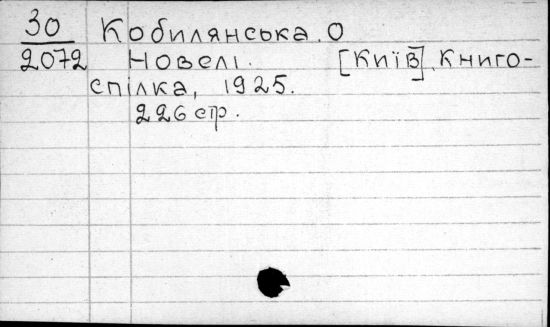 30 Кобилянська. О
2072 Новелі. [Київ]. Книго-
спілка, 1925.
226 стр.